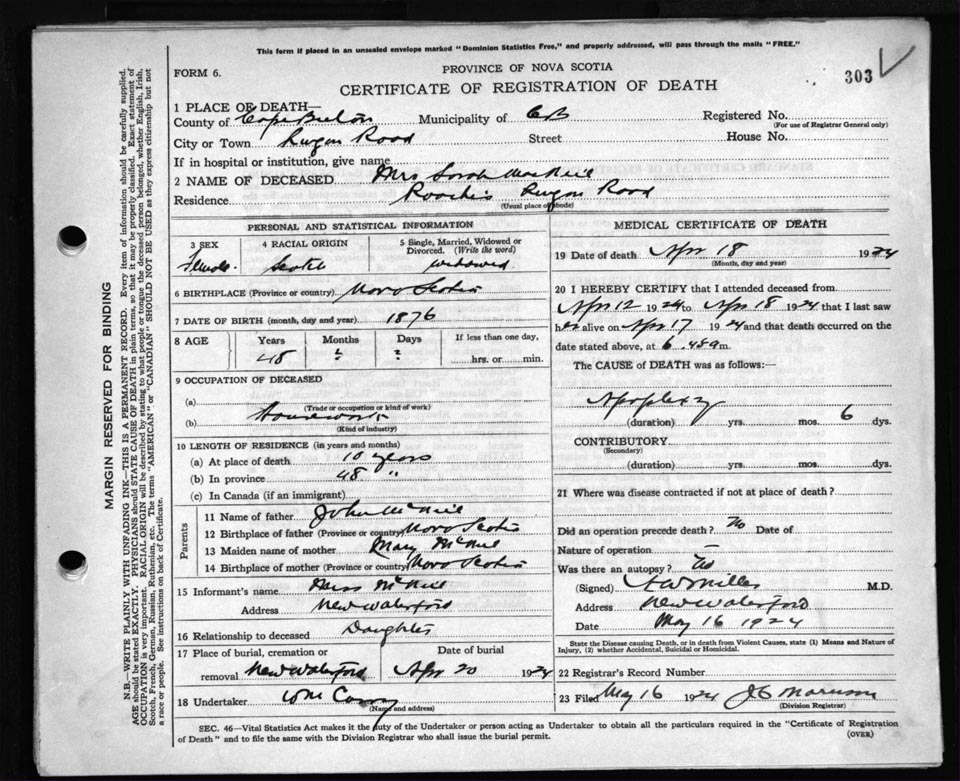 This form if placed in an unsealed envelope marked "Dominion Statistics Free," and properly addressed, will pass through the mails "FREE."
FORM 6.
PROVINCE OF NOVA SCOTIA
303
CERTIFICATE OF REGISTRATION OF DEATH
1 PLACE OF DEATH—
County of Cape Breton Municipality of CB Registered No.
(For use of Registrar General only)
City or Town Road Street House No.
If in hospital or institution, give name
2 NAME OF DECEASED Mrs Sarah MacNeil
Residence Road
(Usual place of abode)
PERSONAL AND STATISTICAL INFORMATION
3 SEX 4 RACIAL ORIGIN 5 Single, Married, Widowed or Divorced. (Write the word)
Female Scotch widowed
6 BIRTHPLACE (Province or country) Nova Scotia
7 DATE OF BIRTH (month, day and year) 1876
8 AGE Years Months Days If less than one day,
48 ? ? hrs. or min.
9 OCCUPATION OF DECEASED
(a)
(Trade or occupation or kind of work)
(b) Housework
(Kind of industry)
10 LENGTH OF RESIDENCE (in years and months)
(a) At place of death 10 years
(b) In province 48 "
(c) In Canada (if an immigrant)
Parents
11 Name of father John McNeil
12 Birthplace of father (Province or country) Nova Scotia
13 Maiden name of mother Mary McNeil
14 Birthplace of mother (Province or country) Nova Scotia
15 Informant's name Miss McNeil
Address New Waterford
16 Relationship to deceased Daughter
17 Place of burial, cremation or removal Date of burial
New Waterford Apr 20 1924
18 Undertaker Wm
(Name and address)
MEDICAL CERTIFICATE OF DEATH
19 Date of death Apr 18 1924
(Month, day and year)
20 I HEREBY CERTIFY that I attended deceased from
Apr 12 1924 to Apr 18 1924 that I last saw
her alive on Apr 17 1924 and that death occurred on
date stated above, at 6.48 a m.
The CAUSE of DEATH was as follows:—
Apoplexy
(duration) yrs. mos. 6 dys.
CONTRIBUTORY
(Secondary)
(duration) yrs. mos. dys.
21 Where was disease contracted if not at place of death?
Did an operation precede death? No Date of
Nature of operation —
Was there an autopsy? No
(Signed) Miller M.D.
Address New Waterford
Date May 16 1924
State the Disease causing Death, or in death from Violent Causes, state (1) Means and Nature of
Injury, (2) whether Accidental, Suicidal or Homicidal.
22 Registrar's Record Number
23 Filed May 16 1924
(Division Registrar)
SEC. 46—Vital Statistics Act makes it the duty of the Undertaker or person acting as Undertaker to obtain all the particulars required in the "Certificate of Registration
of Death" and to file the same with the Division Registrar who shall issue the burial permit.
(OVER)
MARGIN RESERVED FOR BINDING
N.B.—WRITE PLAINLY WITH UNFADING INK—THIS IS A PERMANENT RECORD. Every item of information should be carefully supplied.
AGE should be stated EXACTLY. PHYSICIANS should STATE CAUSE OF DEATH in plain terms, so that it may be properly classified. Exact statement of
OCCUPATION is very important. RACIAL ORIGIN will be described by stating to what people or tongue the deceased person belonged, whether English, Irish,
Scotch, French, German, Russian, Ruthenian, etc. The terms "AMERICAN" or "CANADIAN" SHOULD NOT BE USED as they express citizenship but not
a race or people. See instructions on back of Certificate.